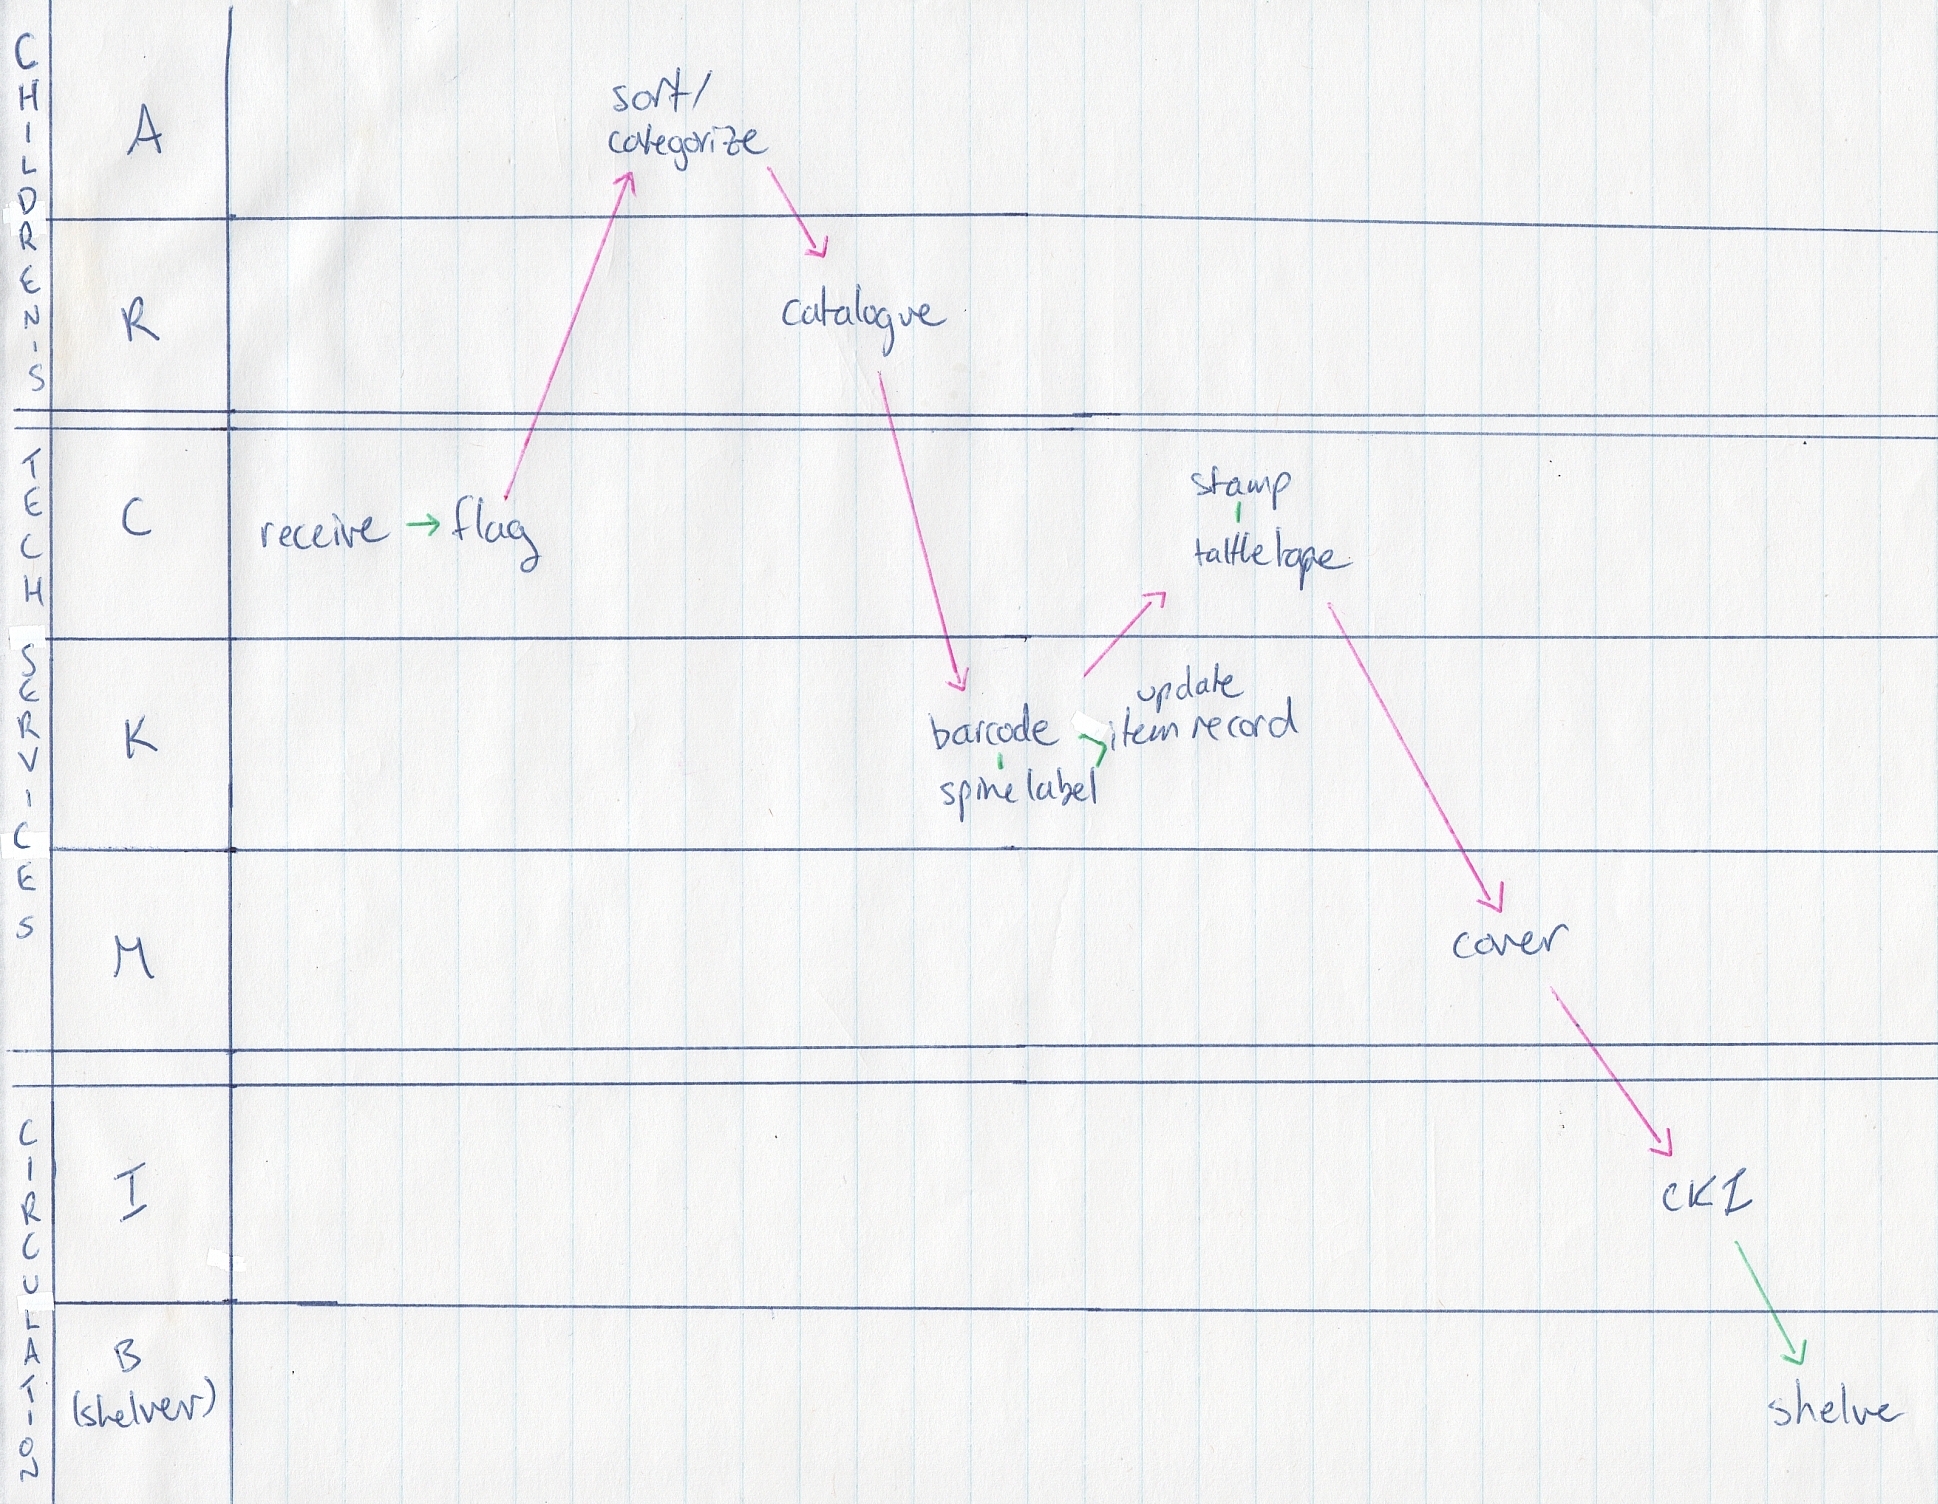 CHILDREN'S
A
sort/
categorize
R
catalogue
TECH SERVICES
C
receive
flag
stamp
tattletape
K
barcode
spine label
update
item record
M
cover
CIRCULATION
I
CKI
B
(shelver)
shelve